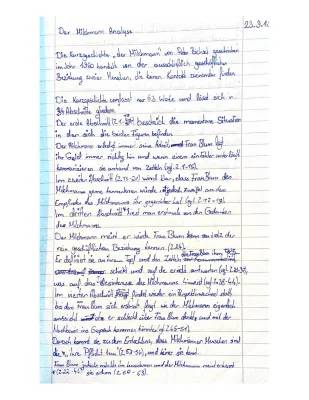 23.9.12
Der Milchmann Analyse
Die Kurzgeschichte „der Milchmann" von Peter Bichsel geschrieben
im Jahr 1960 handelt von der ausschließlich geschäftlichen
Beziehung zweier Menschen, die keinen Kontakt zueinander finden.
Die Kurzgeschichte umfasst nur 63 und lässt sich in
Abschnitte gliedern.
Der erste Abschnitt beschreibt die momentane Situation
in der sich die beiden Figuren befinden.
Der Milchmann erledigt immer seine Arbeit, Frau Blum legt
ihr Geld immer richtig hin und wenn einem ein Fehler unterläuft
kommunizieren sie anhand von Zetteln
Im zweiten Abschnitt wird klar, dass Frau Blum den
Milchmann gerne kennenlernen würde, jedoch Zweifel an dem
Empfinden des Milchmanns ihr gegenüber hat
Im dritten Abschnitt liest man erstmals von den Gedanken
des Milchmanns.
Der Milchmann meint er würde Frau Blum kennen
rein geschäftlichen Beziehung kennen
Er definiert sie an ihrem Topf und den Zetteln
schickt und auf die er erneut antwortet
was auf das des Milchmanns hinweist
Im vierten Abschnitt findet wieder ein Perspektivwechsel statt
bei dem Frau Blum sich erneut fragt wie der Milchmann eigentlich
aussieht er schlecht über Frau Blum denkt und mit der
Nachbarin ins Gespräch kommen könnte
Danach kommt sie zu dem Entschluss, dass Milchmänner Menschen sind
die ihre Pflicht tun und keiner sie kennt.
Frau Blum jedoch möchte ihn kennenlernen und der Milchmann meint er kennt
sie schon